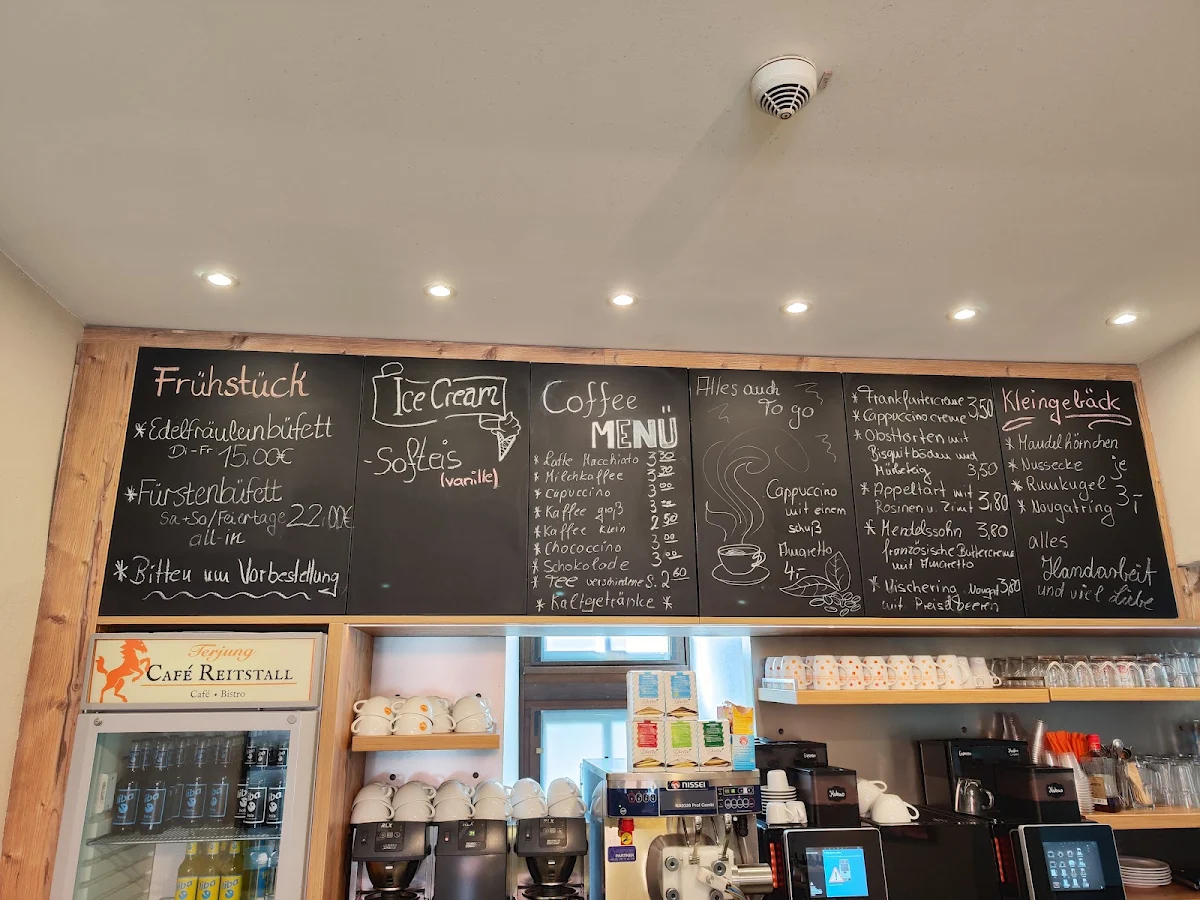 Frühstück
*Edelfräuleinbüfett
Di-Fr 15.00€
*Fürstenbüfett
Sa+So/Feiertage 22,00€
all-in
*Bitten um Vorbestellung
Ice Cream
-Softeis
(vanille)
Coffee
MENÜ
* Latte Macchiato
* Milchkaffee
* Capuccino
* Kaffee groß
* Kaffee klein 2 50
* Chococcino
* Schokolode
* Tee verschiedene S. 2 60
* Kaltgetränke *
Alles auch
To go
Cappuccino
mit einem
schuß
Amaretto
4,-
* Frankfurtercreme
* Cappuccinocreme 3,50
* Obsttorten mit
Bisquitböden und
Mürbeteig 3,50
* Appeltart mit 3,80
Rosinen u. Zimt
* Mendelssohn 3,80
französische Buttercreme
mit Amaretto
* Vischerino Nougat 3,80
mit Preiselbeeren
Kleingebäck
* Mandelhörnchen
* Nussecke je
* Rumkugel 3,-
* Nougatring
alles
Handarbeit
und viel Liebe
Terjung
CAFÉ REITSTALL
Café • Bistro
NISSEI
PARTNER